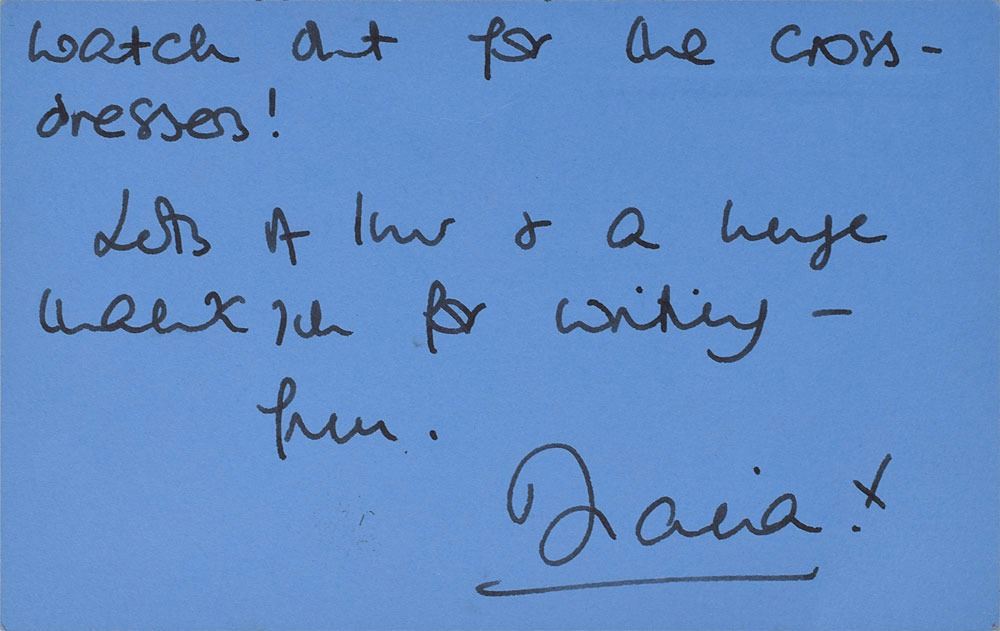 Watch out for the cross-
dressers!
Lots of love & a huge
thank you for writing –
from.
Diana. x